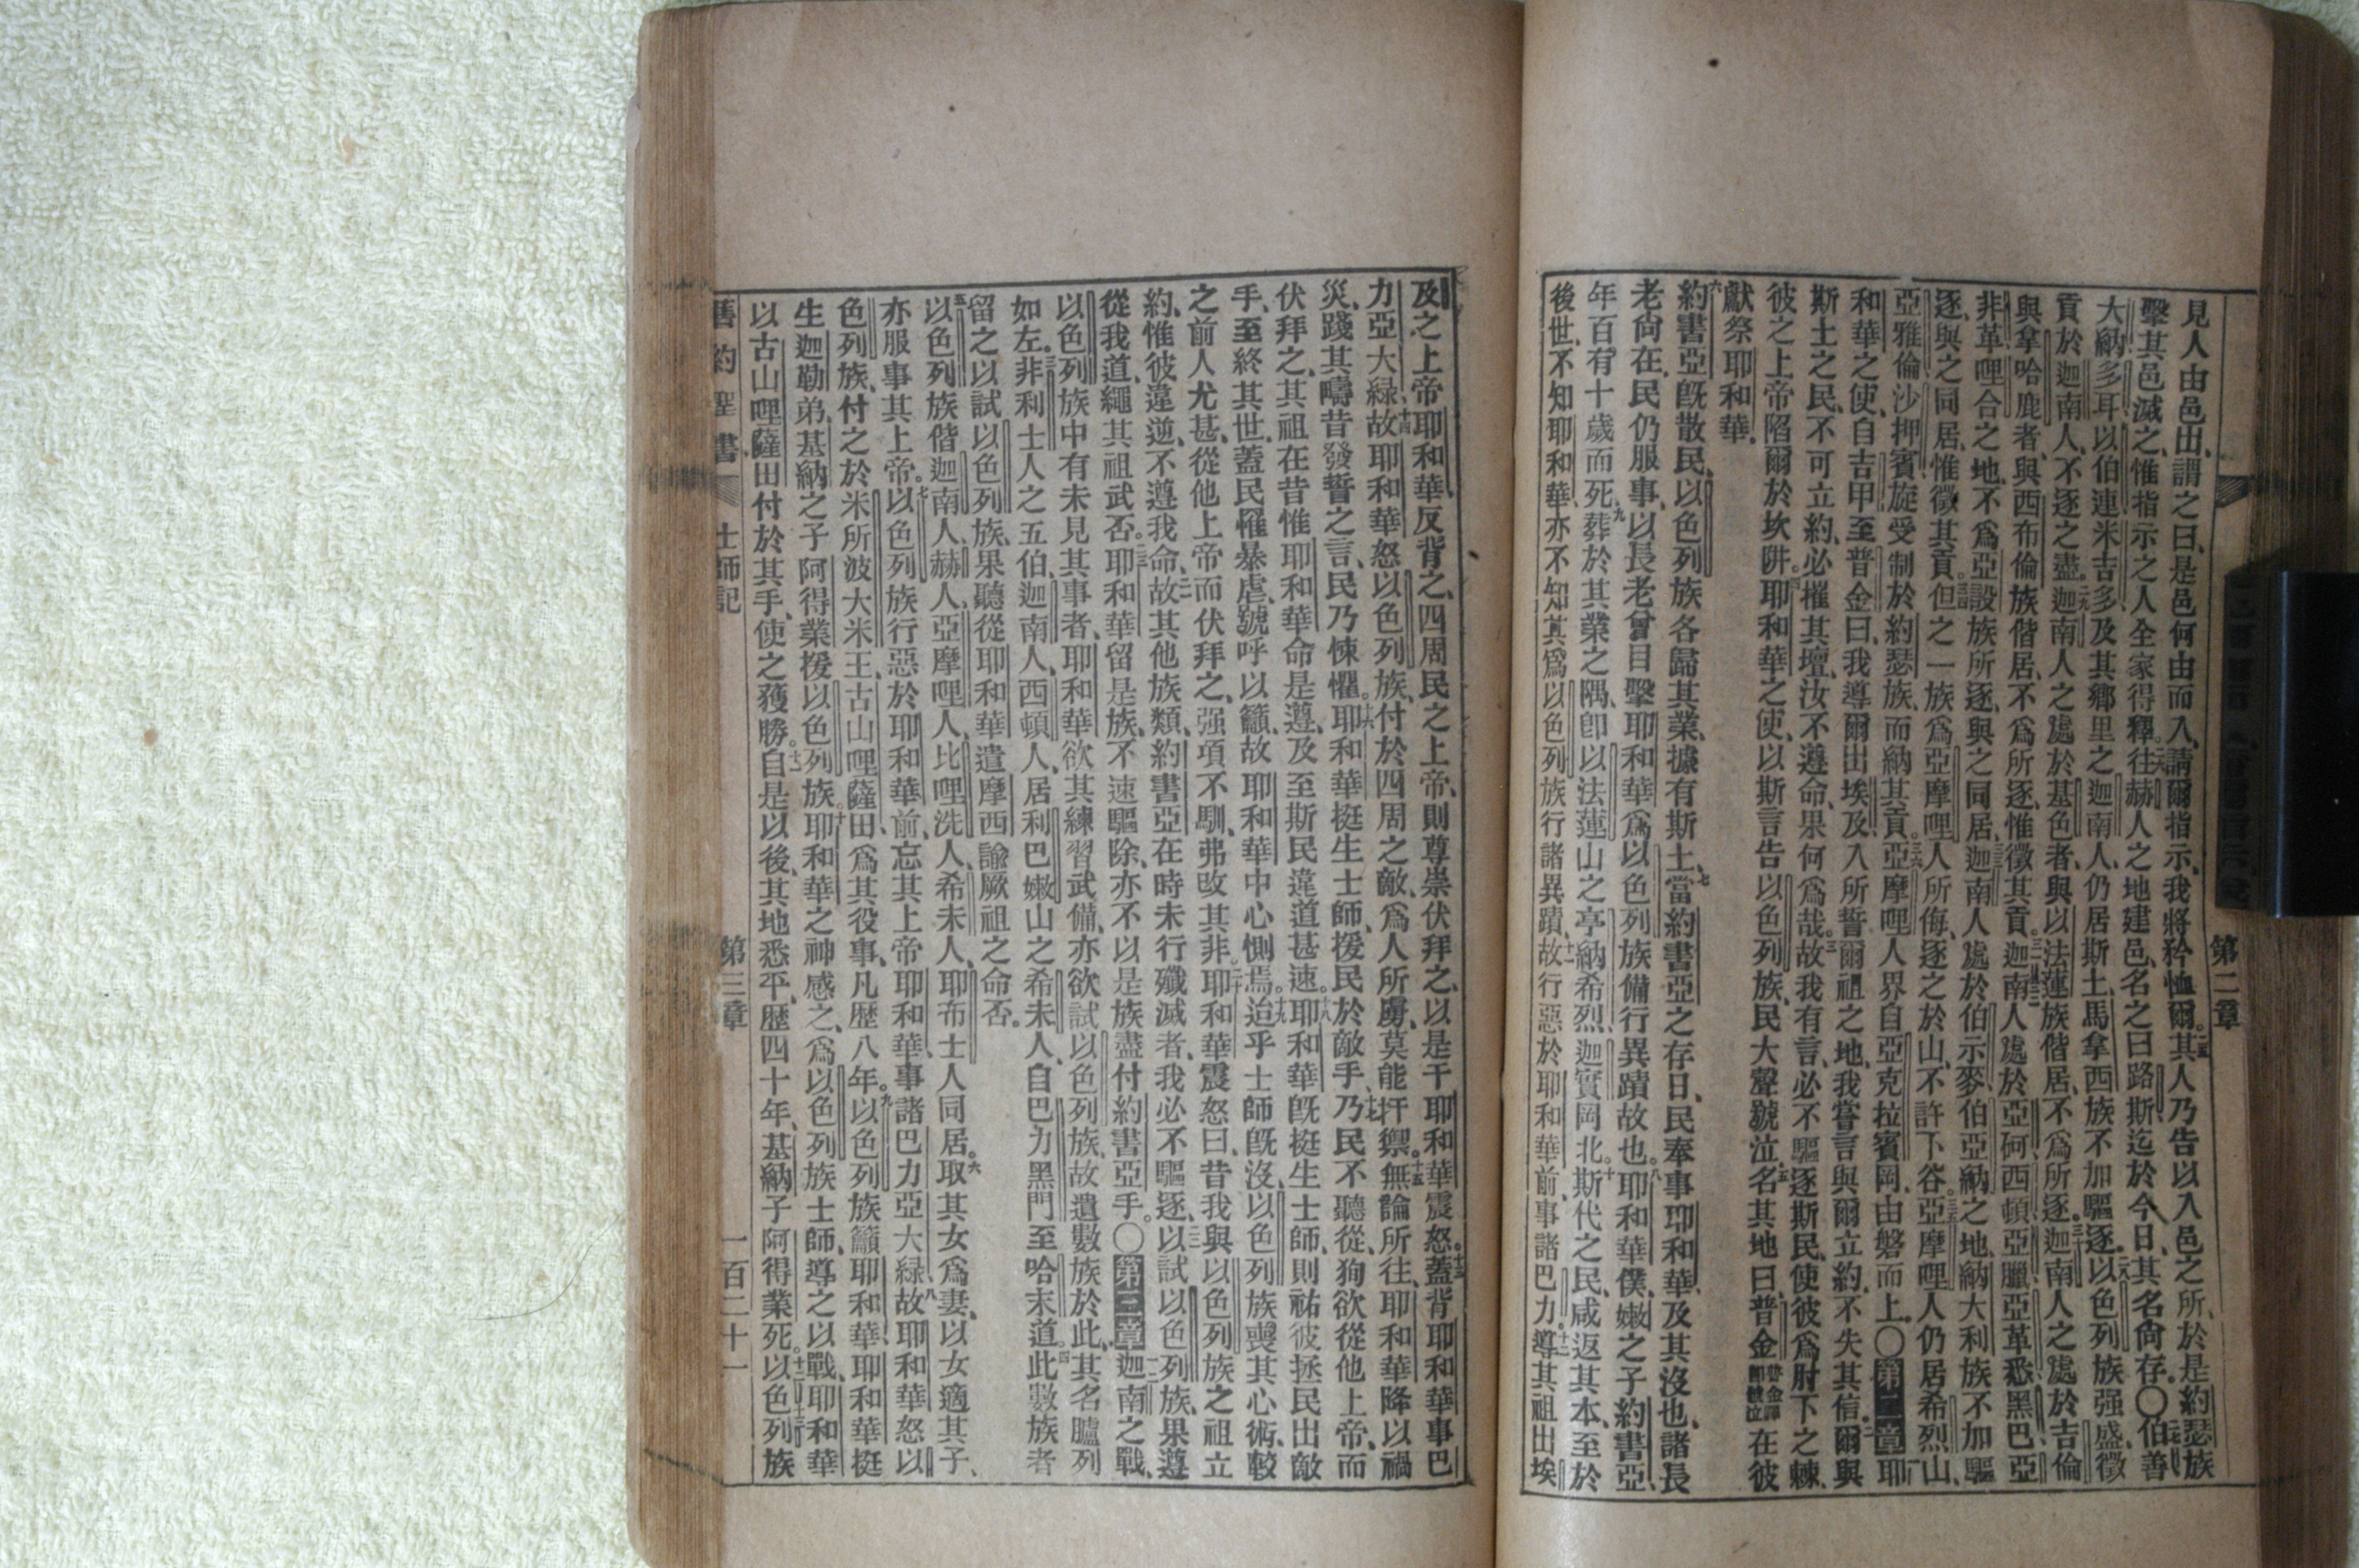 第二章
見人由邑出、謂之曰、是邑何由而入、請爾指示、我將矜恤爾。二五其人乃告以入邑之所、於是約瑟族
擊其邑滅之、惟指示之人全家得釋。二六往赫人之地建邑、名之曰路斯、迄於今日、其名尙存。〇伯善
大納多耳以伯連米吉多及其鄉里之迦南人、仍居斯土、馬拿西族不加驅逐。二八以色列族强盛、徵
貢於迦南人、不逐之盡。二九迦南人之處於基色者、與以法蓮族偕居、不爲所逐。三十迦南人之處於吉倫
與拿哈鹿者、與西布倫族偕居、不爲所逐、惟徵其貢。三一迦南人處於亞砢西頓亞臘亞革悉黑巴亞
非革哩合之地、不爲亞設族所逐、與之同居。三三迦南人處於伯示麥伯亞納之地、納大利族不加驅
逐、與之同居、惟徵其貢。三四但之一族爲亞摩哩人所侮、逐之於山、不許下谷。三五亞摩哩人仍居希烈山、
亞雅倫沙押賓、旋受制於約瑟族、而納其貢。三六亞摩哩人界自亞克拉賓岡、由磐而上。〇第二章耶
和華之使、自吉甲至普金曰、我導爾出埃及、入所誓爾祖之地、我嘗言與爾立約、不失其信、二爾與
斯土之民、不可立約、必摧其壇、汝不遵命、果何爲哉。三故我有言、必不驅逐斯民、使彼爲肘下之棘、
彼之上帝陷爾於坎阱。四耶和華之使、以斯言告以色列族、民大聲號泣、五名其地曰普金普金譯卽號泣在彼
獻祭耶和華。
六約書亞旣散民、以色列族各歸其業、據有斯土、七當約書亞之存日、民奉事耶和華、及其沒也、諸長
老尙在、民仍服事、以長老曾目擊耶和華爲以色列族備行異蹟故也。八耶和華僕、嫩之子約書亞、
年百有十歲而死、九葬於其業之隅、卽以法蓮山之亭納希烈、迦實岡北。十斯代之民、咸返其本、至於
後世、不知耶和華、亦不知其爲以色列族行諸異蹟、十一故行惡於耶和華前、事諸巴力、十二導其祖出埃
及之上帝耶和華反背之、四周民之上帝、則尊崇伏拜之、以是干耶和華震怒。十三蓋背耶和華事巴
力亞大綠、十四故耶和華怒以色列族、付於四周之敵、爲人所虜、莫能扞禦。十五無論所往、耶和華降以禍
災、踐其疇昔發誓之言、民乃悚懼。十六耶和華挺生士師、援民於敵手、十七乃民不聽從、狥欲從他上帝、而
伏拜之、其祖在昔惟耶和華命是遵、及至斯民違道甚速。十八耶和華旣挺生士師、則祐彼拯民出敵
手、至終其世、蓋民罹暴虐、號呼以籲、故耶和華中心惻焉。十九迨乎士師旣沒、以色列族喪其心術、較
之前人尤甚、從他上帝而伏拜之、强項不馴、弗改其非。二十耶和華震怒曰、昔我與以色列族之祖立
約、惟彼違逆、不遵我命、二一故其他族類、約書亞在時未行殲滅者、我必不驅逐、二二以試以色列族、果遵
從我道、繩其祖武否。二三耶和華留是族、不速驅除、亦不以是族盡付約書亞手。〇第三章迦南之戰、
以色列族中有未見其事者、耶和華欲其練習武備、亦欲試以色列族、故遺數族於此、其名臚列
如左。三非利士人之五伯、迦南人、西頓人、居利巴嫩山之希未人、自巴力黑門至哈末道。四此數族者
留之以試以色列族、果聽從耶和華遣摩西諭厥祖之命否。
五以色列族偕迦南人、赫人、亞摩哩人、比哩洗人、希未人、耶布士人同居。六取其女爲妻、以女適其子、
亦服事其上帝。七以色列族行惡於耶和華前、忘其上帝耶和華、事諸巴力亞大綠、八故耶和華怒以
色列族、付之於米所波大米王、古山哩薩田、爲其役事、凡歷八年。九以色列族籲耶和華、耶和華挺
生迦勒弟、基納之子阿得業援以色列族。十耶和華之神感之、爲以色列族士師、導之以戰、耶和華
以古山哩薩田付於其手、使之獲勝。十一自是以後、其地悉平、歷四十年、基納子阿得業死。十二以色列族
舊約聖書　士師記　第三章　一百二十一